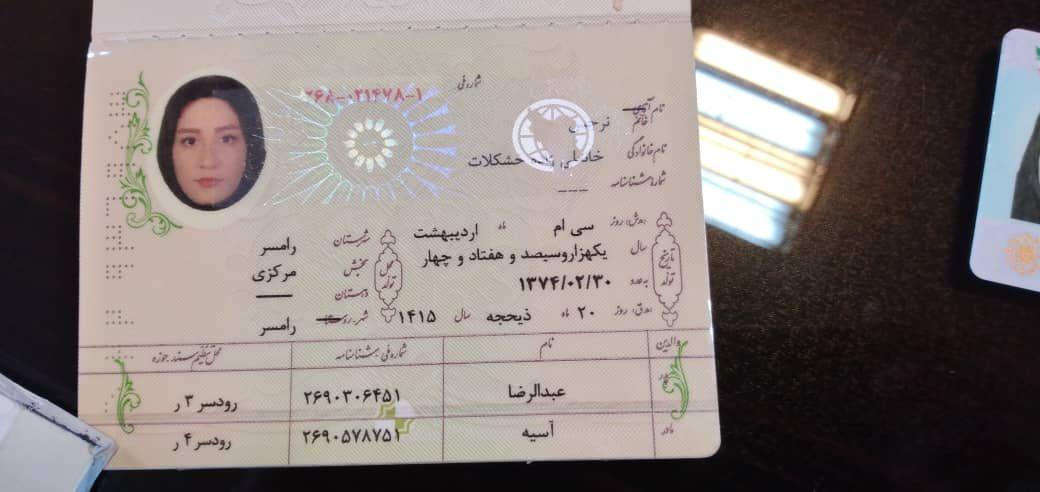 شماره ملی
۲۶۸-۰۲۱۴۷۸-۱
نام آقای خانم نرجس
نام خانوادگی خشکلات
شماره شناسنامه ---
روز سی ام ماه اردیبهشت
سال یکهزاروسیصد و هفتاد و چهار
تاریخ تولد
به عدد ۱۳۷۴/۰۲/۳۰
روز ۲۰ ماه ذیحجه سال ۱۴۱۵
محل تولد
شهرستان رامسر
بخش مرکزی
دهستان
شهر روستا رامسر
والدین نام شماره ملی / شناسنامه محل تنظیم سند / حوزه
پدر عبدالرضا ۲۶۹۰۳۰۶۴۵۱ رودسر ۳ ر
مادر آسیه ۲۶۹۰۵۷۸۷۵۱ رودسر ۴ ر